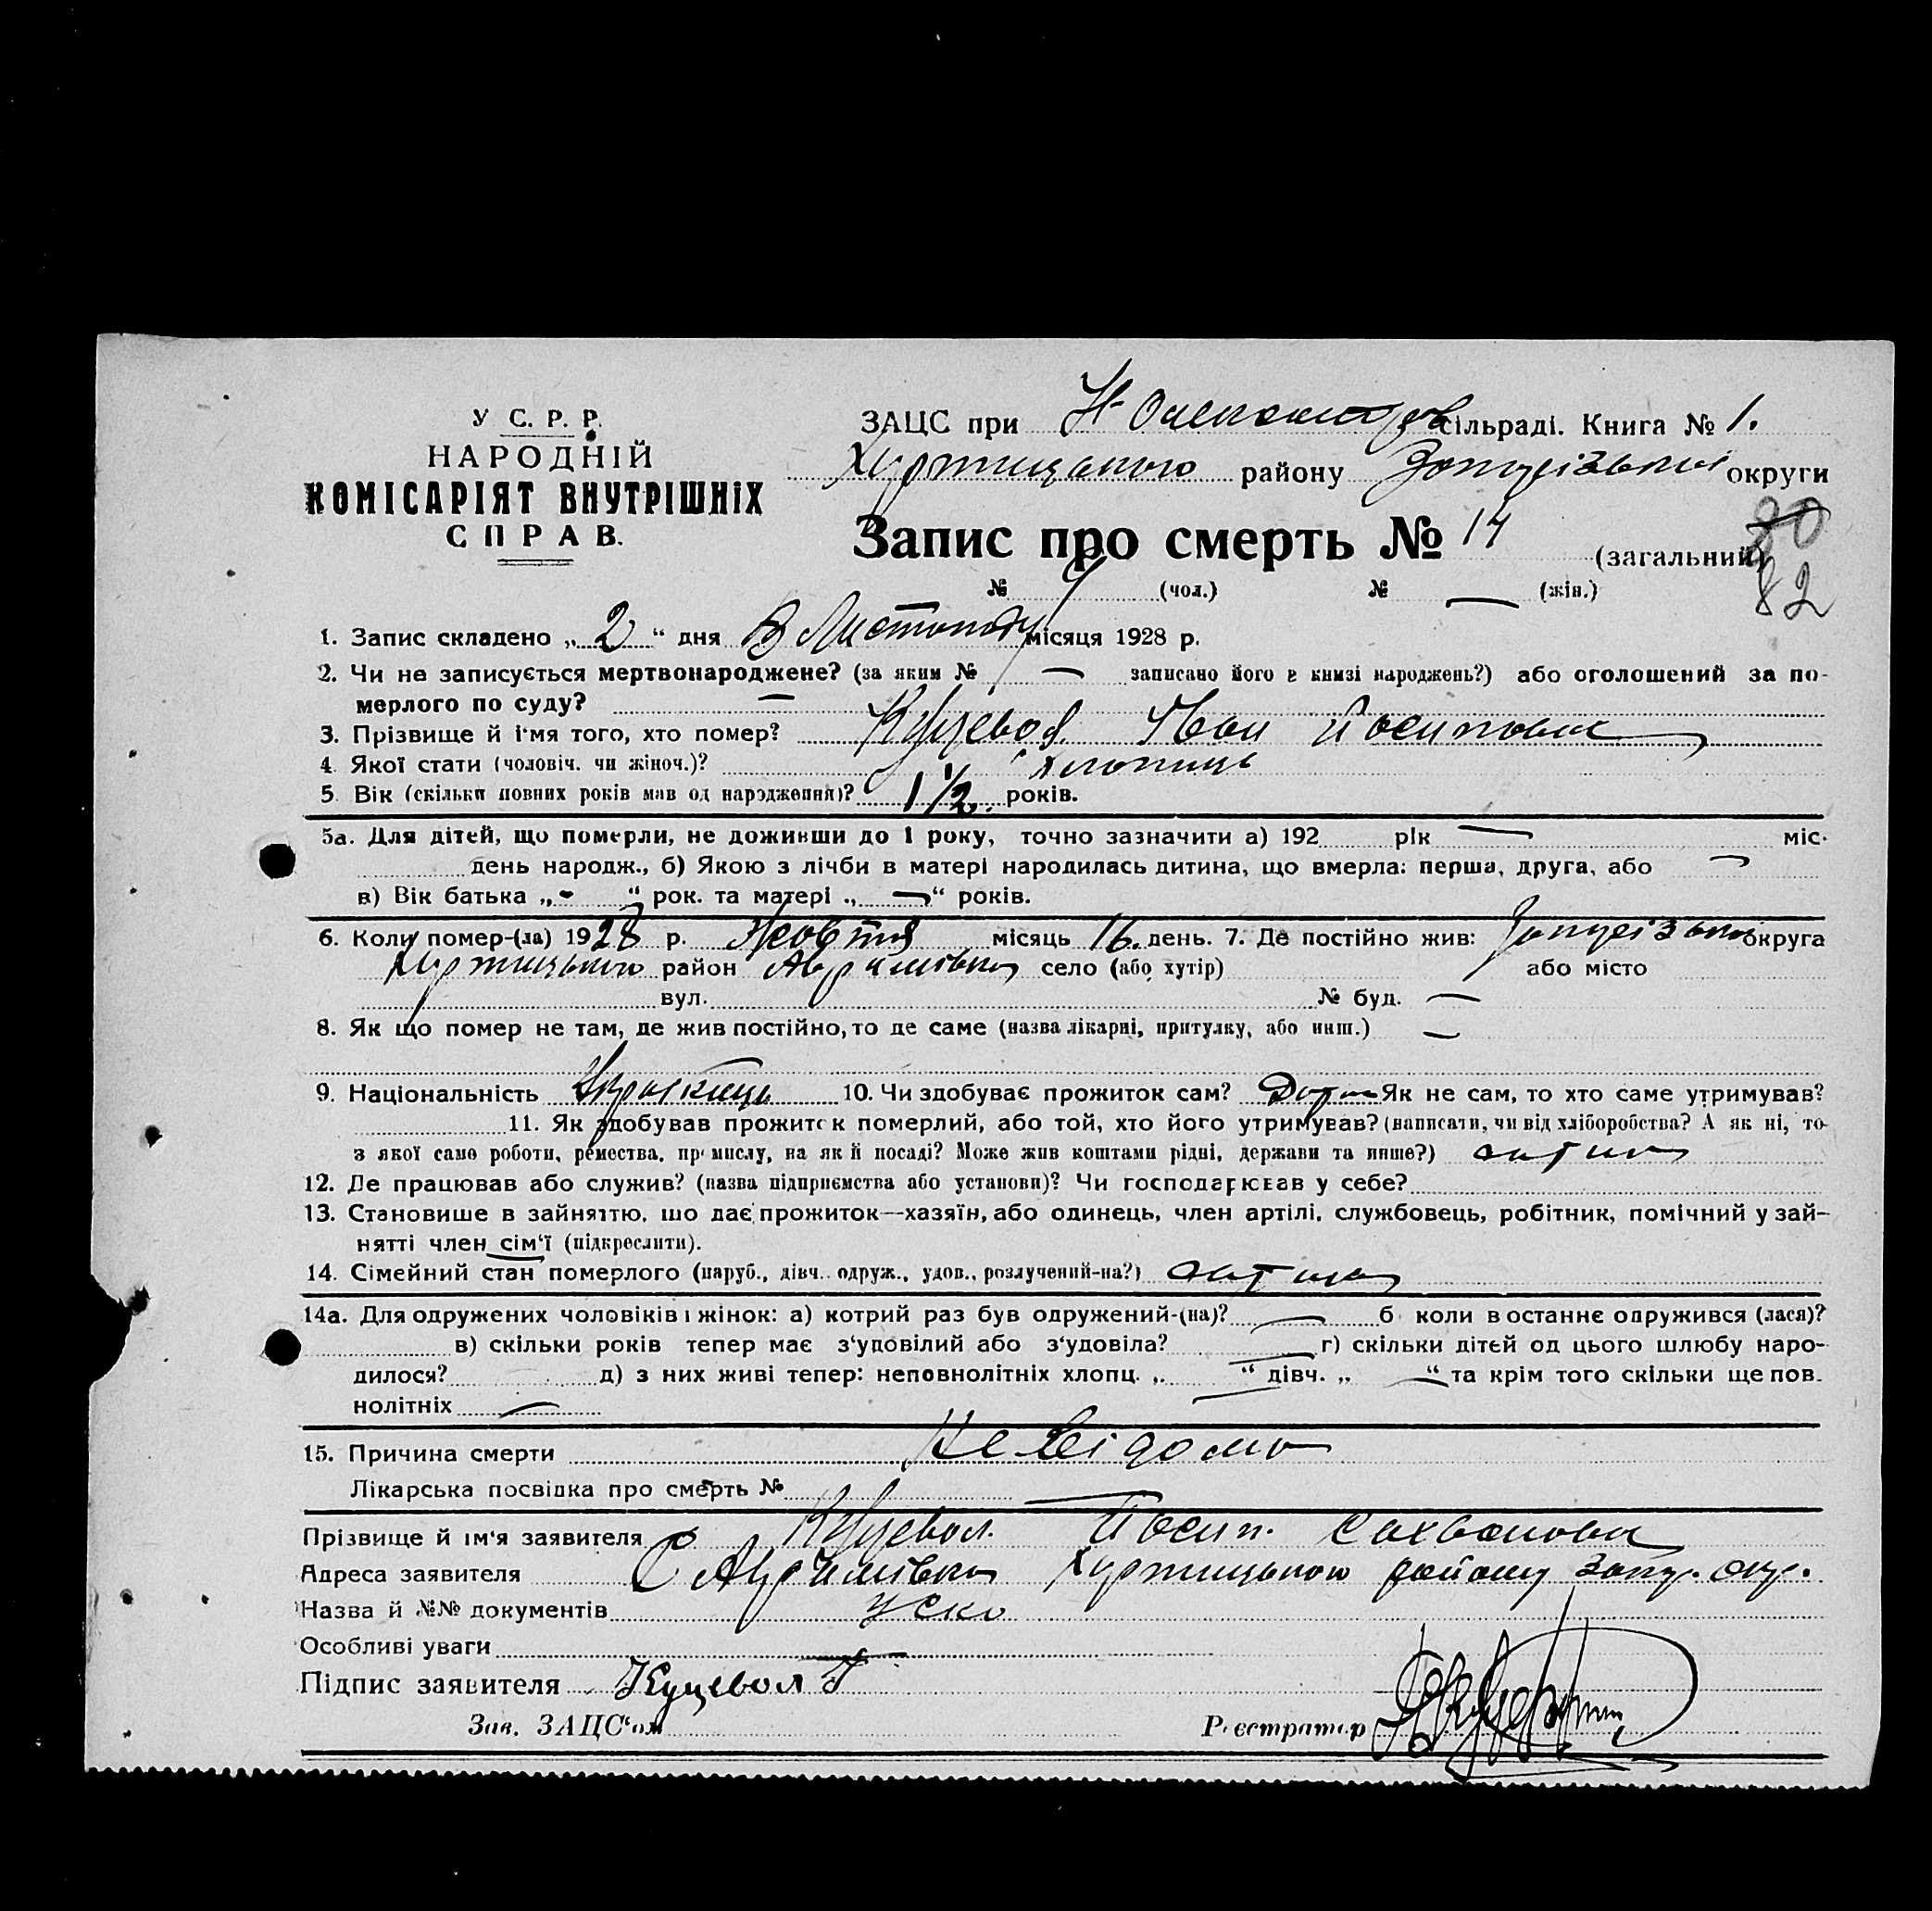 У С. Р. Р.
НАРОДНІЙ
КОМІСАРІЯТ ВНУТРІШНІХ
СПРАВ.
ЗАЦС при Н-Олександров сільраді. Книга № 1.
Хортицького району Запорізької округи
Запис про смерть № 14 (загальний)
80
82
№ (чол.) № — (жін.)
1. Запис складено „ 2 “ дня В Листопаду місяця 1928 р.
2. Чи не записується мертвонароджене? (за яким № — записано його в книзі народжень?) або оголошений за по-
мерлого по суду? —
3. Прізвище й і'мя того, хто помер? Куцевол Іван Йосипович
4. Якої стати (чоловіч. чи жіноч.)? хлопець
5. Вік (скільки повних років мав од народження)? 1 1/2 років.
5а. Для дітей, що померли, не доживши до 1 року, точно зазначити а) 192 рік — міс.
день народж., б) Якою з лічби в матері народилась дитина, що вмерла: перша, друга, або —
в) Вік батька „ - “ рок. та матері „ — “ років.
6. Коли помер-(ла) 1928 р. Жовтня місяць 16. день. 7. Де постійно жив: Запорізької округа
Хортицького район село (або хутір) або місто
вул. № буд. —
8. Як що помер не там, де жив постійно, то де саме (назва лікарні, притулку, або инш.) —
9. Національність Українець 10. Чи здобуває прожиток сам? Як не сам, то хто саме утримував?
11. Як здобував прожиток померлий, або той, хто його утримував? (написати, чи від хліборобства? А як ні, то
з якої само роботи, ремества, промислу, на якій посаді? Може жив коштами рідні, держави та инше?)
12. Де працював або служив? (назва підприємства або установи)? Чи господарював у себе?
13. Становище в зайняттю, що дає прожиток—хазяїн, або одинець, член артілі, службовець, робітник, помічний у зай-
нятті член сім'ї (підкреслити).
14. Сімейний стан померлого (паруб., дівч. одруж., удов., розлучений-на?)
14а. Для одружених чоловіків і жінок: а) котрий раз був одружений-(на)? — б коли в останнє одружився (лася)?
в) скільки років тепер має з'удовілий або з'удовіла? — г) скільки дітей од цього шлюбу наро-
дилося? д) з них живі тепер: неповнолітніх хлопц. „ — “ дівч. „ — “ та крім того скільки ще пов.
нолітніх —
15. Причина смерти Невідома
Лікарська посвідка про смерть № —
Прізвище й ім'я заявителя Куцевол Йосип.
Адреса заявителя С Хортицького району Запор. окр.
Назва й №№ документів
Особливі уваги —
Підпис заявителя Куцевол
Зав. ЗАЦС'ом Реєстратор